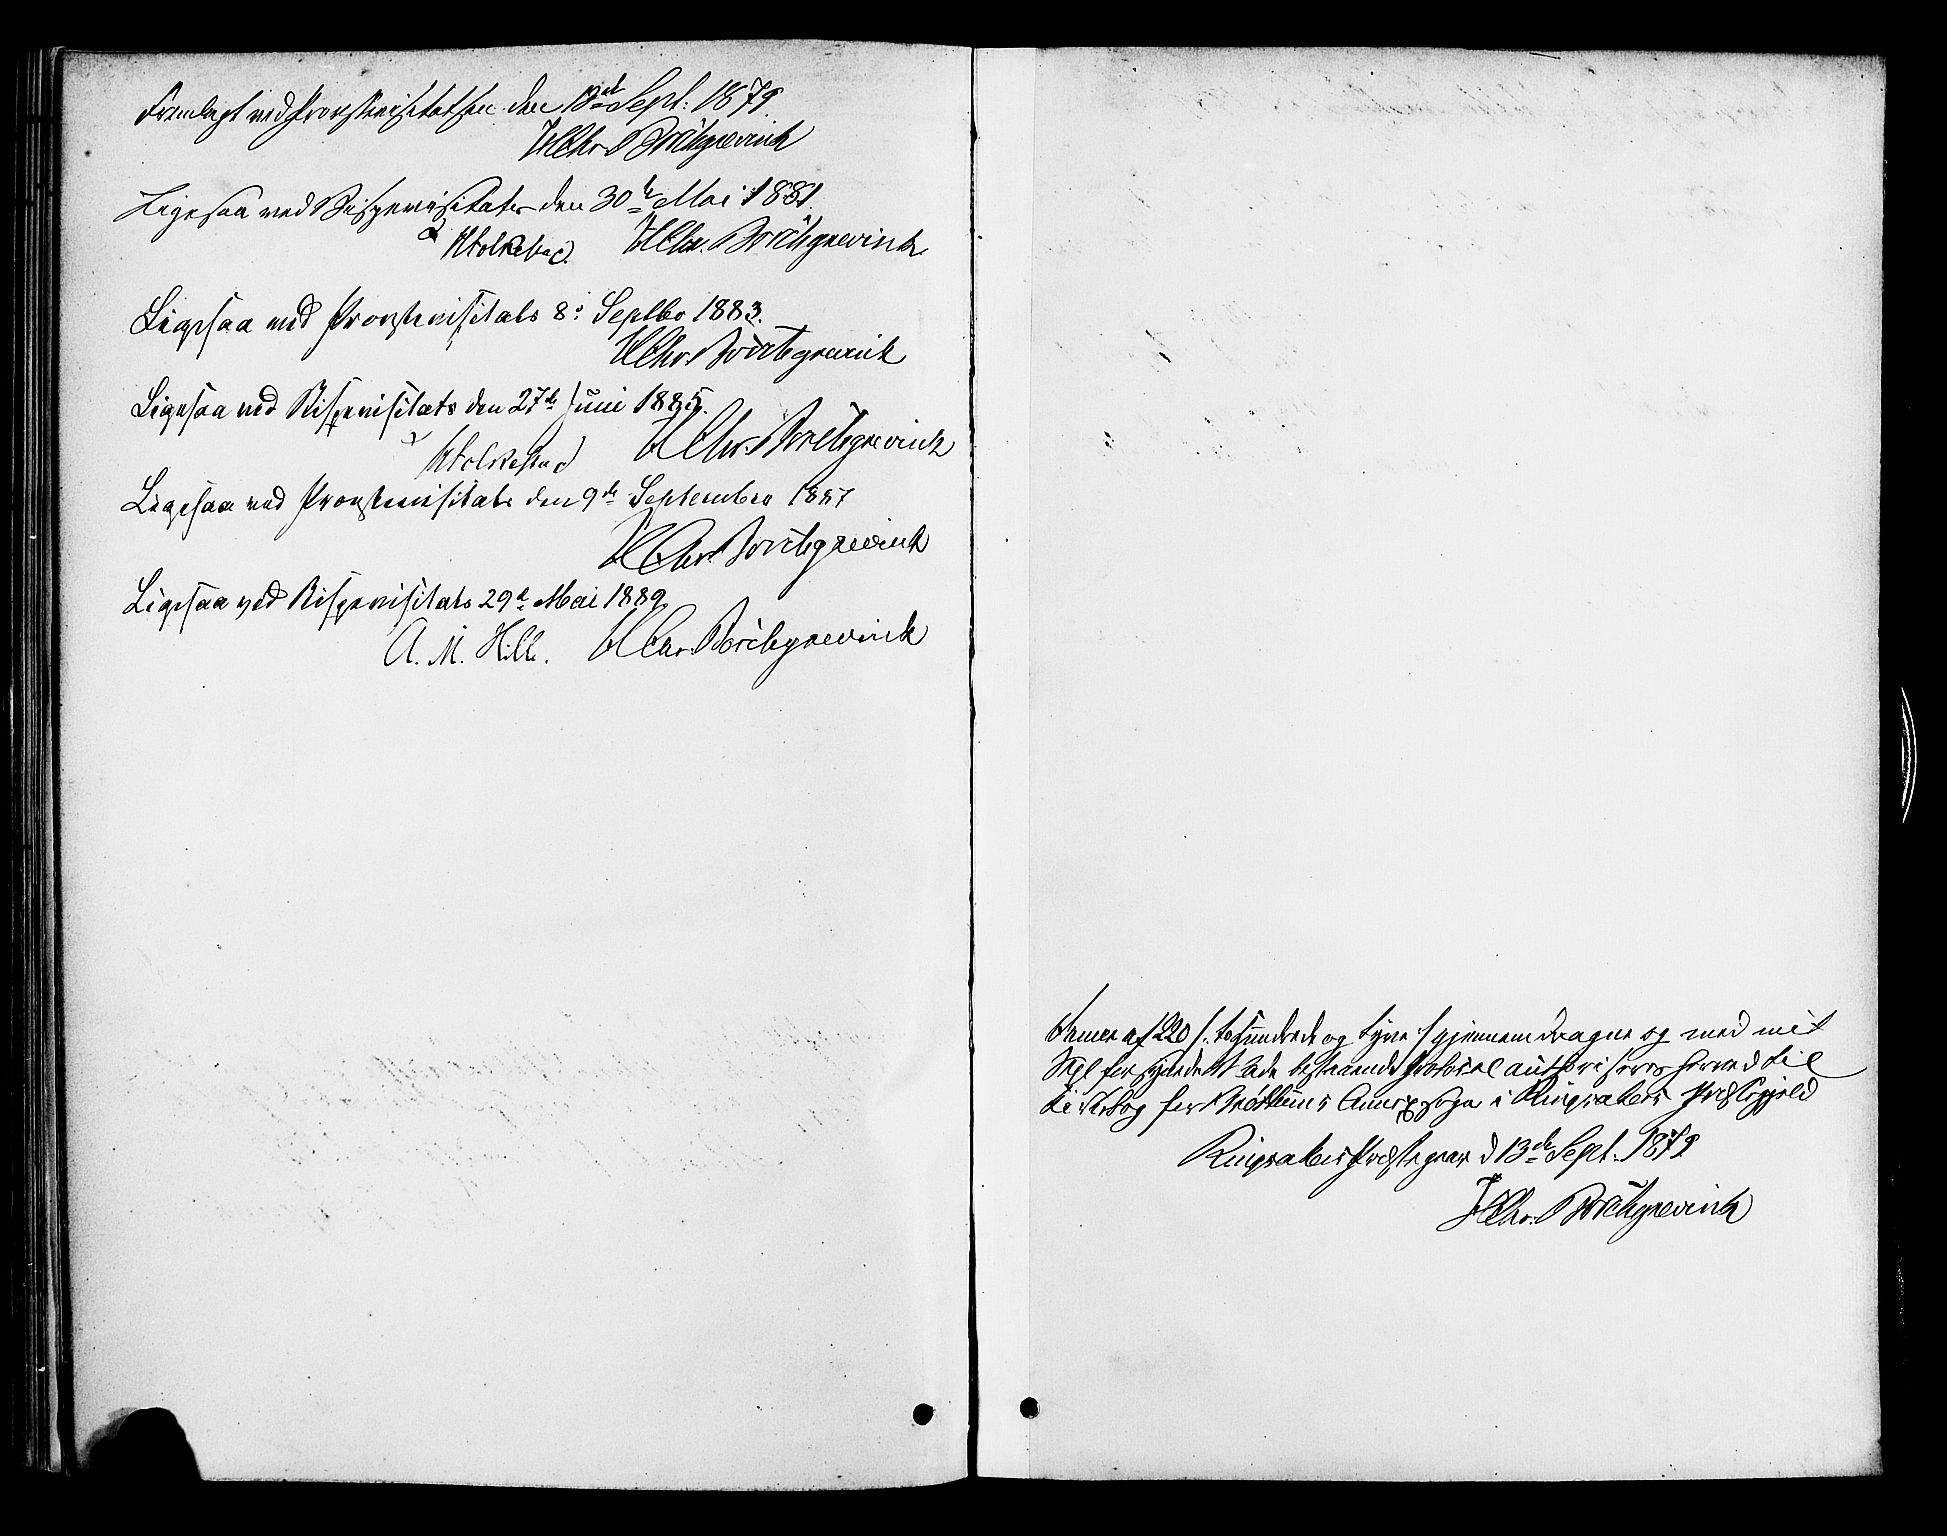 Fremlagt ved Provstevisitatsen den 13de Sept. 1879.
H Chr. Borchgrevink
Ligesaa ved Bispevisitats den 30te Mai 1881.
H Folkestad. H Chr. Borchgrevink
Ligesaa ved Provstevisitats 8: Septbr 1883.
H Chr. Borchgrevink
Ligesaa ved Bispevisitats den 27de Juni 1885.
H Folkestad H Chr. Borchgrevink
Ligesaa ved Provstevisitats den 9de September 1887
H Chr. Borchgrevink
Ligesaa ved Bispevisitats 29de Mai 1889
A. M. Hille. H Chr. Borchgrevink
af 220 /: tohundrede og tyve :/ gjennemdragne og med mit
Segl forsynede Blade bestaaende Protocol authoriseres herved til
Kirkebog for Brøttums Annexsogn i Ringsakers Præstegjeld
Ringsakers Præstegaard d 13de Sept. 1879
H Chr. Borchgrevink